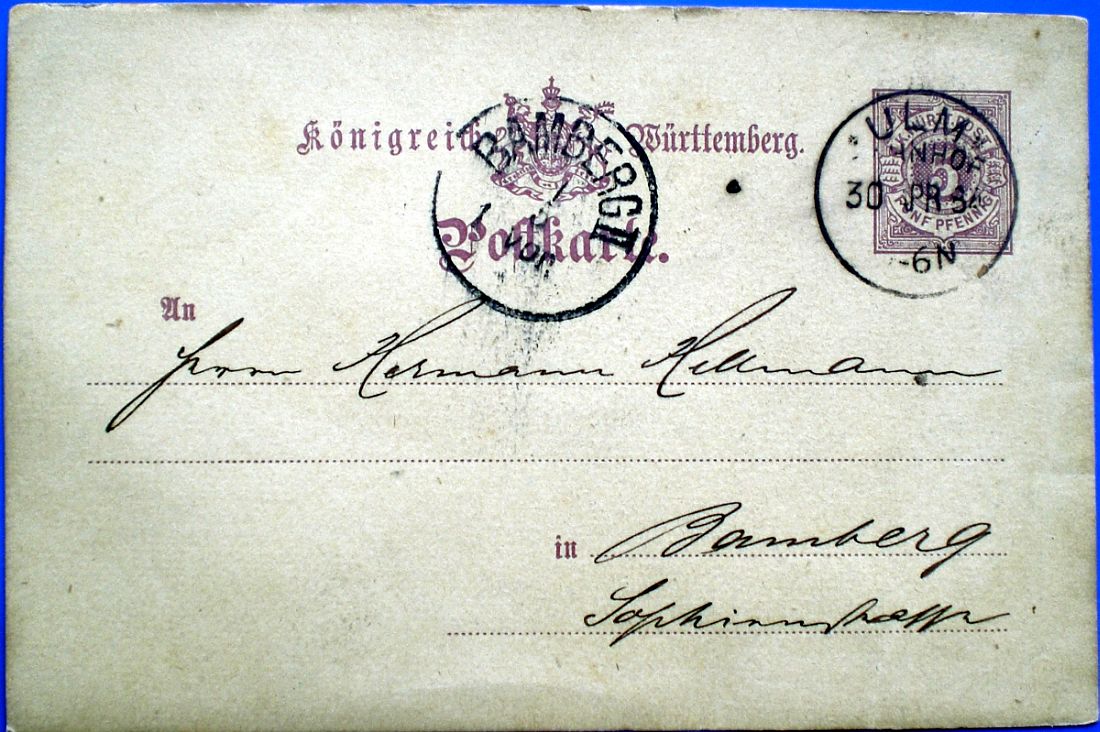 Königreich Württemberg.
Postkarte.
BAMBERG II
1
ULM
30 APR 84
-6N
FÜNF PFENNIG
5
An
Herrn Hermann Hellmann
in Bamberg
Sophienstrasse